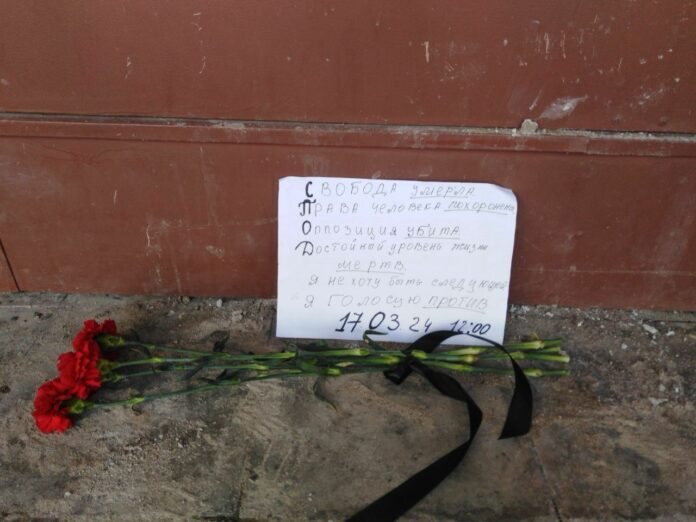 СВОБОДА УМЕРЛА
ПРАВА ЧЕЛОВЕКА ПОХОРОНЕНЫ
ОППОЗИЦИЯ УБИТА
Достойный уровень жизни
МЕРТВ
Я не хочу быть следующей
Я ГОЛОСУЮ ПРОТИВ
17 03 24 12:00